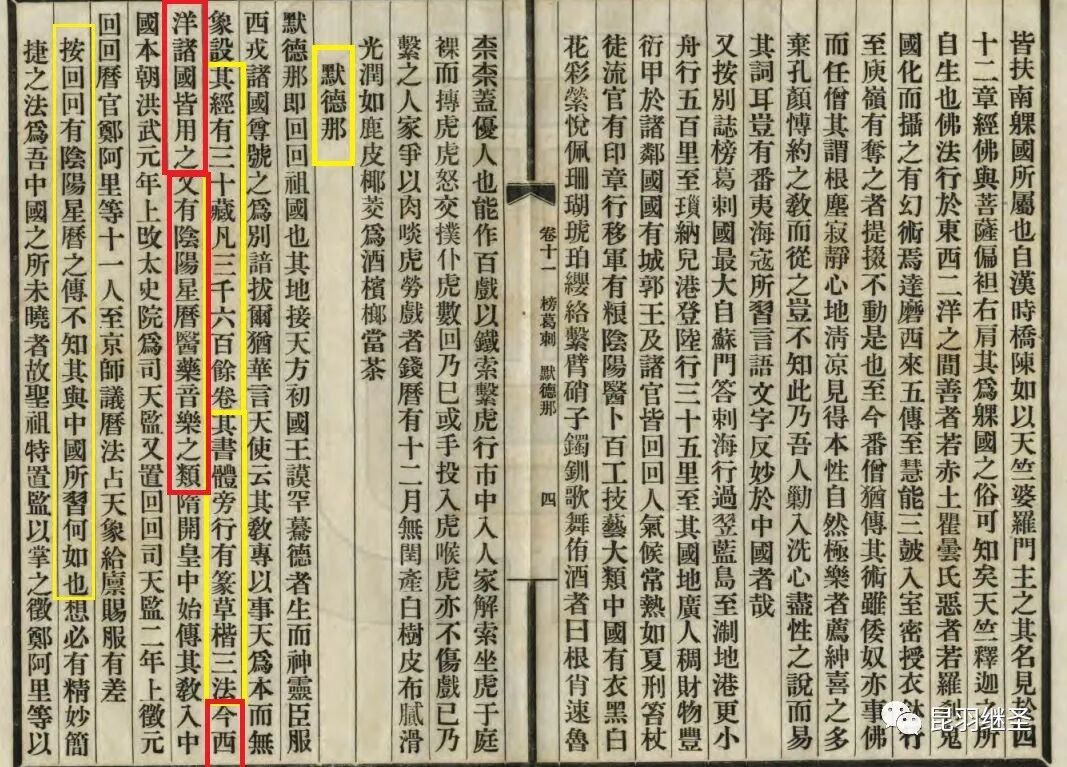 皆扶南躶國所屬也自漢時橋陳如以天竺婆羅門主之其名見於四
十二章經佛與菩薩偏袒右肩其爲躶國之俗可知矣天竺釋迦之所
自生也佛法行於東西二洋之間善者若赤土瞿曇氏惡者若羅刹鬼
國化而攝之有幻術焉達磨西來五傳至慧能三皷入室密授衣鉢行
至庾嶺有奪之者提掇不動是也至今番僧猶傳其術雖倭奴亦事佛
而任僧其謂根塵寂靜心地淸凉見得本性自然極樂者薦紳喜之多
棄孔顏愽約之敎而從之豈不知此乃吾人勦入洗心盡性之說而易
其詞耳豈有番夷海寇所習言語文字反妙於中國者哉
又按別誌榜葛刺國最大自蘇門答刺海行過翠藍島至淛地港更小
舟行五百里至瑣納兒港登陸行三十五里至其國地廣人稠財物豐
衍甲於諸鄰國國有城郭王及諸官皆回回人氣候常熱如夏刑笞杖
徒流官有印章行移軍有粮陰陽醫卜百工技藝大類中國有衣黑白
花彩縈悅佩珊瑚琥珀纓絡繫臂硝子鐲釧歌舞侑酒者曰根肖速魯
卷十一 榜葛刺 默德那 四
柰柰蓋優人也能作百戲以鐵索繫虎行市中入人家解索坐虎于庭
裸而搏虎虎怒交撲仆虎數回乃巳或手投入虎喉虎亦不傷戲已乃
繫之人家爭以肉啖虎勞戲者錢曆有十二月無閏產白樹皮布膩滑
光潤如鹿皮椰茭爲酒檳榔當茶
默德那
默德那即回回祖國也其地接天方初國王謨罕驀德者生而神靈臣服
西戎諸國尊號之爲別諳拔爾猶華言天使云其敎專以事天爲本而無
象設其經有三十藏凡三千六百餘卷其書體旁行有篆草楷三法今西
洋諸國皆用之又有陰陽星曆醫藥音樂之類隋開皇中始傳其敎入中
國本朝洪武元年上攺太史院爲司天監又置回回司天監二年上徵元
回回曆官鄭阿里等十一人至京師議曆法占天象給廩賜服有差
按回回有陰陽星曆之傳不知其與中國所習何如也想必有精妙簡
捷之法爲吾中國之所未曉者故聖祖特置監以掌之徵鄭阿里等以
昆羽继圣